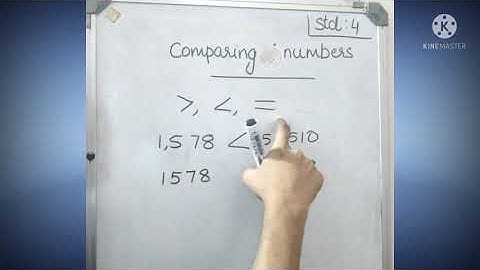 Std: 4
KINEMASTER
Comparing numbers
>, <, =
1,578 < 5 510
1578